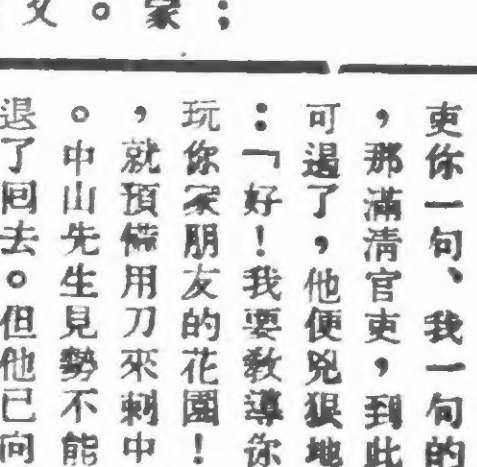 ；
家
。
父
吏你一句、我一句的
，那滿清官吏，到此
可遏了，他便兇狠地
：「好！我要敎導你
玩你家朋友的花園！
，就預備用刀來刺中
。中山先生見勢不能
退了回去。但他已向